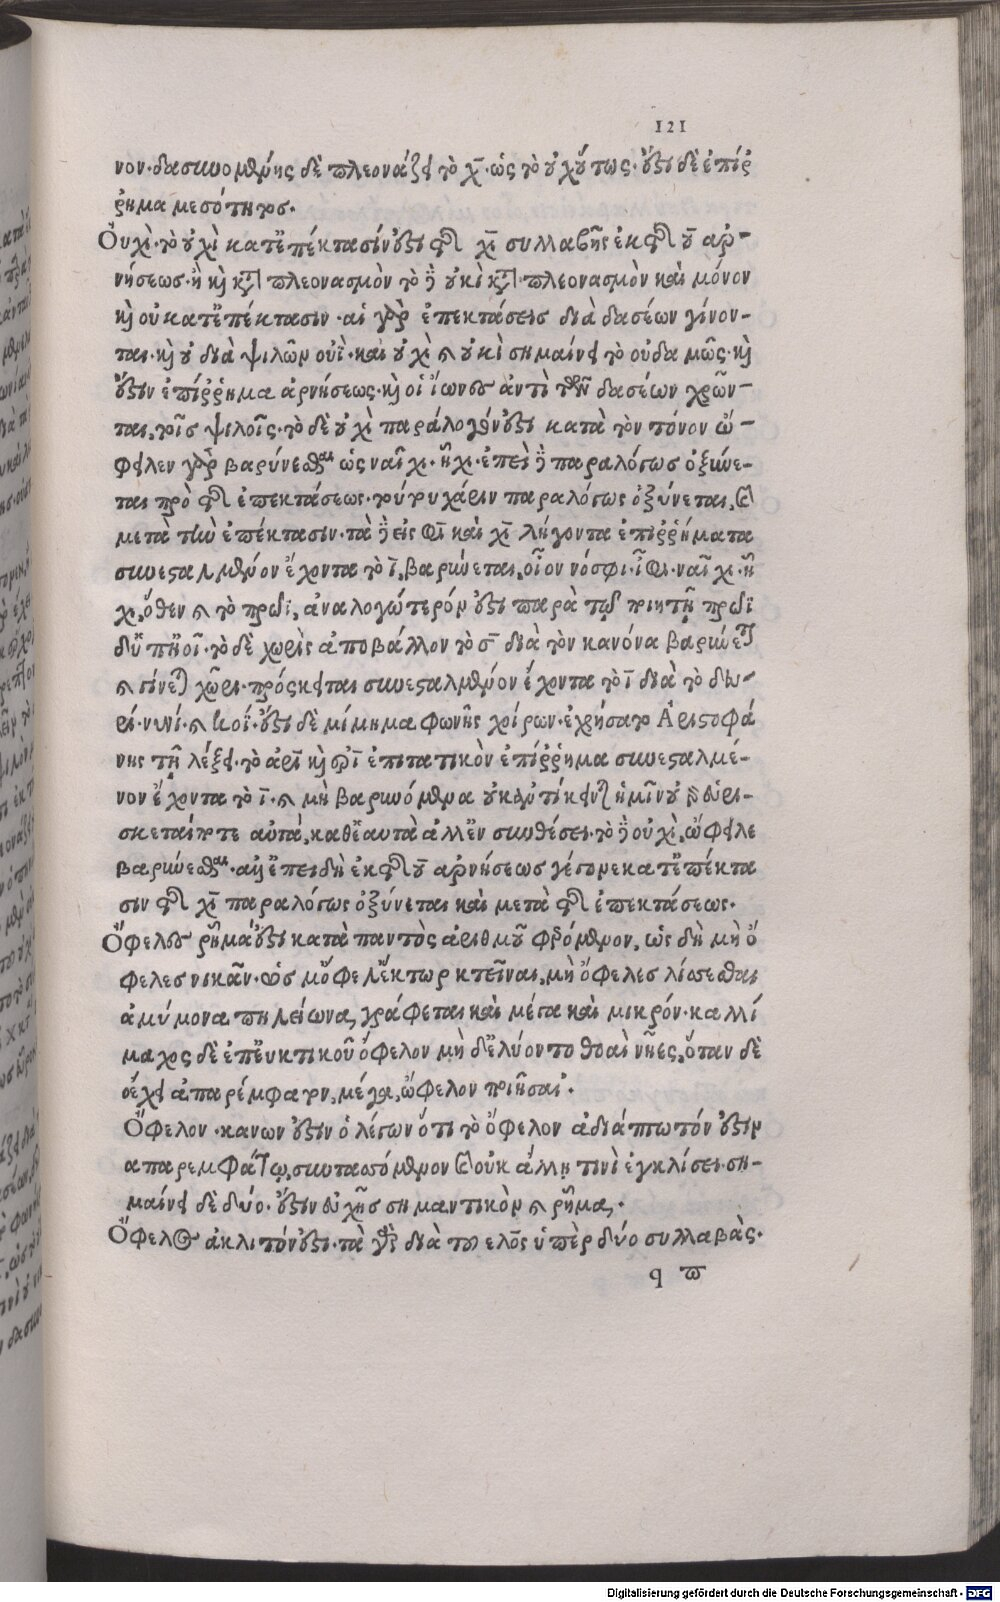 121
νον· δασυνομένης δὲ πλεονάζει τὸ χ̄· ὡς τὸ οὐχούτως· ἔστι δὲ ἐπίρ
ῥημα μεσότητος.
Οὐχὶ· τὸ οὐχὶ κατ' ἐπέκτασίν ἐστι τῆς χῑ συλλαβῆς ἐκ τῆς οὐ ἀρ-
νήσεως· ἢ καὶ κατὰ πλεονασμὸν τὸ δὲ οὐκὶ κατὰ πλεονασμὸν καὶ μόνον
καὶ οὐ κατ' ἐπέκτασιν· αἱ γὰρ ἐπεκτάσεις διὰ δασέων γίνον-
ται· καὶ οὐ διὰ ψιλῶν οὐῒ· καὶ οὐχὶ καὶ οὐκὶ σημαίνει τὸ οὐδαμῶς· καὶ
ἔστιν ἐπίρρημα ἀρνήσεως· καὶ οἱ ἴωνες ἀντὶ τῶν δασέων χρῶν-
ται, τοῖς ψιλοῖς· τὸ δὲ οὐχὶ παράλογόν ἐστι κατὰ τὸν τόνον ὤ-
φειλεν γὰρ βαρύνεσθαι ὡς ναῖχι· ἧχι· ἐπεὶ δὲ παραλόγως ὀξύνε-
ται πρὸ τῆς ἐπεκτάσεως· τούτου χάριν παραλόγως ὀξύνεται, καὶ
μετὰ τὴν ἐπέκτασιν· τὰ δὲ εἰς φῑ καὶ χῑ λήγοντα ἐπιρρήματα
συνεσταλμένον ἔχοντα τὸ ῑ, βαρύνεται, οἷον νόσφι· ἶφι· ναῖχι· ἧ
χι, ὅθεν καὶ τὸ πρωῒ, ἀναλογώτερόν ἐστι παρὰ τῷ ποιητῇ πρωῒ
δ' ὑπηοῖ· τὸ δὲ χωρὶς ἀποβάλλον τὸ σ̄ διὰ τὸν κανόνα βαρύνεται
καὶ γίνεται χῶρι· πρόσκειται συνεσταλμένον ἔχοντα τὸ ῑ διὰ τὸ δευ-
ρί· νυνί· καὶ κοΐ· ἔστι δὲ μίμημα φωνῆς χοίρων· ἐχρήσατο Ἀριστοφά
νης τῇ λέξει· τὸ ἀρῑ καὶ ἐρῑ ἐπιτατικὸν ἐπίρρημα συνεσταλμέ-
νον ἔχοντα τὸ ῑ· καὶ μὴ βαρυνόμενα οὐκ ἀντίκειται ἡμῖν οὐ γὰρ εὑρί-
σκεται ποτε αὐτὰ, καθ' ἑαυτὰ ἀλλ' ἐν συνθέσει· τὸ δὲ οὐχὶ, ὤφειλε
βαρύνεσθαι· ἀλλ' ἐπειδὴ ἐκ τῆς οὐ ἀρνήσεως γέγονε κατ' ἐπέκτα
σιν τῆς χῑ παραλόγως ὀξύνεται καὶ μετὰ τῆς ἐπεκτάσεως.
Ὄφελος ῥῆμά ἐστι κατὰ παντὸς ἀριθμοῦ φερόμενον, ὡς δὴ μὴ ὄ
φελες νικᾶν· ὥς μ' ὄφελ' ἕκτωρ κτεῖναι, μὴ ὄφελες λίσσεσθαι
ἀμύμονα πηλείωνα, γράφεται καὶ μέγα καὶ μικρόν· καλλί
μαχος δὲ ἐπ' εὐκτικοῦ ὄφελον μὴ δ' ἐλύοντο θοαὶ νῆες, ὅταν δὲ
ἔχει ἀπαρέμφατον, μέγα, ὤφελον ποιῆσαι.
Ὄφελον· κανων ἐστὶν ὁ λέγων ὅτι τὸ ὄφελον ἀδιάπτωτόν ἐστιν
ἀπαρεμφάτῳ, συντασσόμενον καὶ οὐκ ἄλλῃ τινὶ ἐγκλίσει· ση-
μαίνει δὲ δύο· ἔστιν εὐχῆς σημαντικὸν καὶ ῥῆμα.
Ὄφελος ἄκλιτόν ἐστι· τὰ γὰρ διὰ του ελος ὑπὲρ δύο συλλαβὰς·
q ϖ
Digitalisierung gefördert durch die Deutsche Forschungsgemeinschaft - DFG